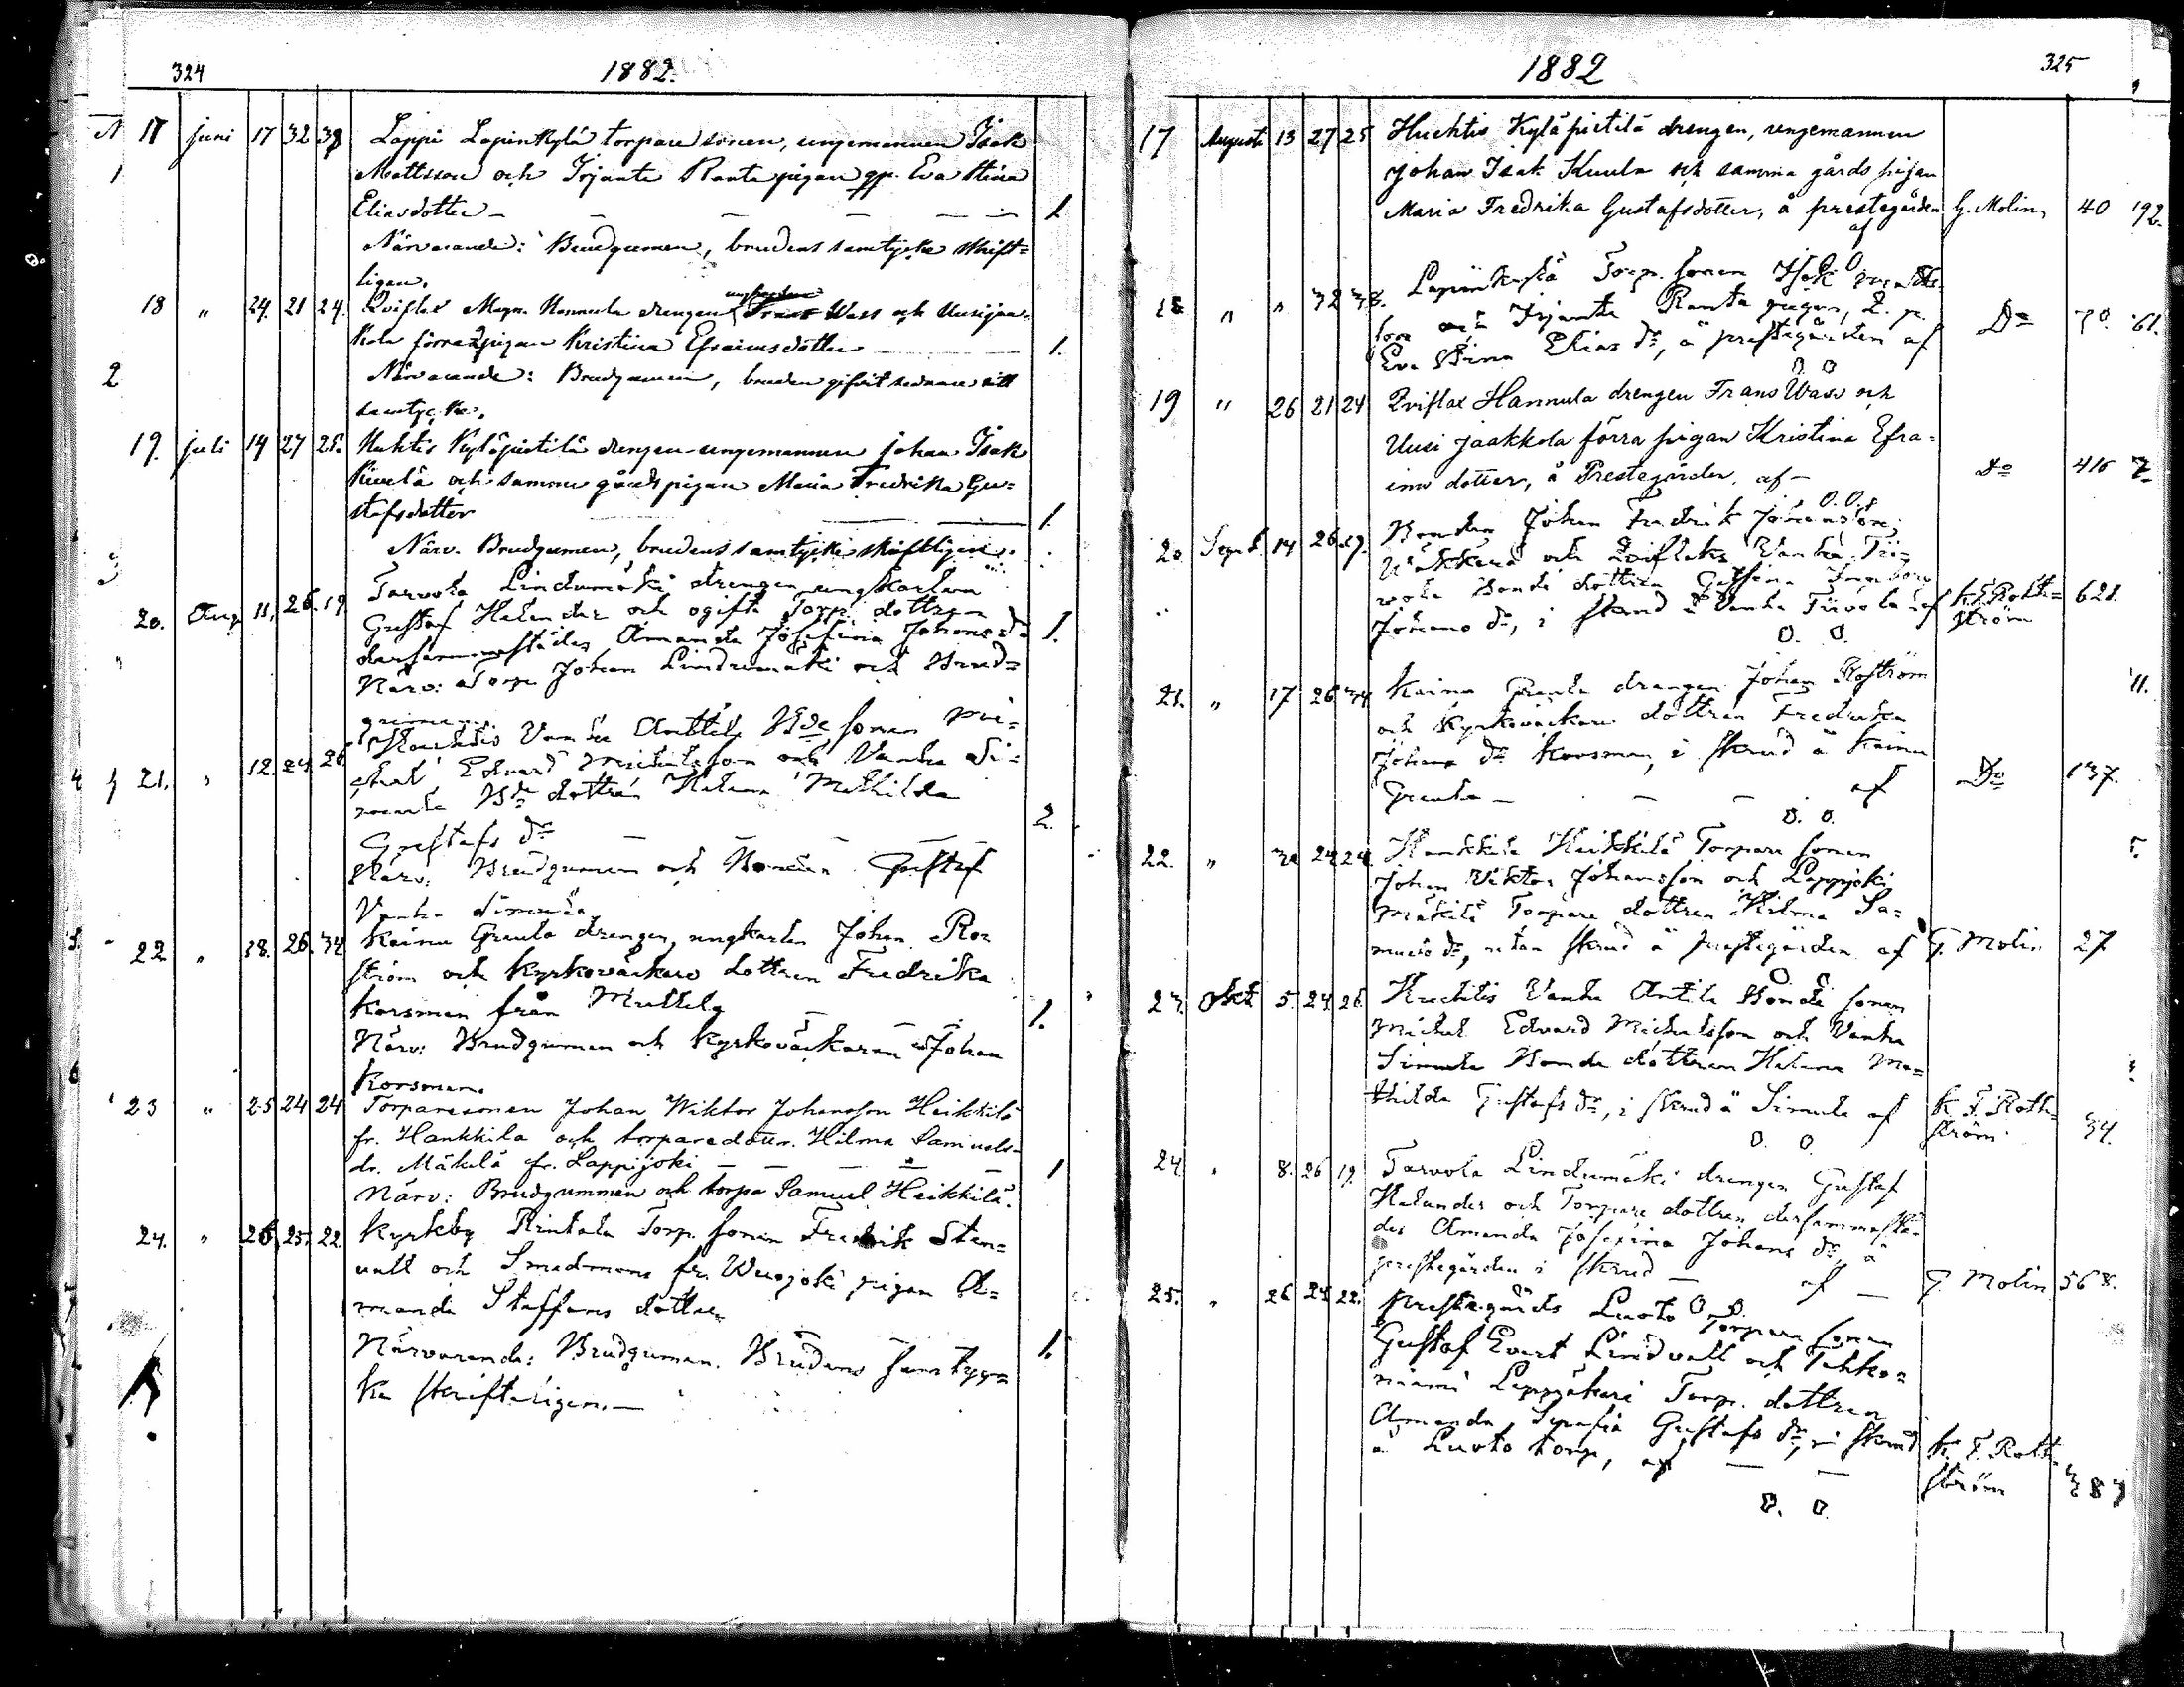 324
1882.
17 juni 17 32 38 Lappi Lapinkylä torpare sonen, ungemannen Isak
1 Mattsson och Irjanta Ranta pigan qp. Eva Stina
Eliasdotter — — — — — 1
Närvarande: Brudgumen, brudens samtycke skrift=
ligen.
18 " 24. 21 24. Qviflax Hannula drengen Frans Wass och Uusijaa-
kola förra pigan Kristina Efraimsdotter 1.
2 Närvarande: Brudgumen, bruden gifvit sednare sitt
samtycke.
19. juli 14 27 25. Huhtis Kyläpietilä drengen ungemannen Johan Isak
Kuula och samma gårds pigan Maria Fredrika Gu=
stafsdotter 1.
3 Närv. Brudgumen, brudens samtycke skriftligen.
20. Aug 11. 26. 19 Tarvola Lindumäki drengen ungkarlen
Gustaf Helander och ogifta Torp. dottren
dersammastädes Amanda Josefina Johans dr 1.
Närv: Torp. Johan Lindumäki och Brud=
gumen.
4 21. " 12. 24 26 Huhtis Vanha Anttila Bde sonen Mi=
chel Edvard Michelsson och Vanha Si=
mula Bde dottren Helena Mathilda
Gustafs dr — — — — 2.
Närv: Brudgumen och Bonden Gustaf
Vanha Simula
22 " 18. 26. 34 Kainu Greula drengen, ungkarlen Johan Ro=
ström och Kyrkoväckare dottren Fredrika
Korsman från Muttela — — — 1.
Närv: Brudgumen och Kyrkoväckaren Johan
Korsman.
23 " 25 24 24 Torparesonen Johan Wiktor Johansson Heikkilä
fr. Hankkila och torparedottr. Hilma Samuels-
dr. Mäkelä fr. Lappijoki — — — — — 1
Närv: Brudgummen och torp. Samuel Heikkilä.
24. " 26 25. 22 Kyrkby Rintala Torp. sonen Fredrik Sten=
vall och Smedmans fr. Wuojoki pigan A=
manda Staffans dotter
Närvarande: Brudguman. Brudens samtyc=
ke skriftligen. — 1.
1882
325
17 Augusti 13 27 25 Huchtis Kyläpietilä drengen, ungemannen
Johan Isak Kuula och samma gårds pigan
Maria Fredrika Gustafsdotter, å prestegården G. Molin 40 192.
af
O O
18 " " 32 38. Lapinkylä Torp. sonen Isak Matts-
son och Irjanta Ranta pigan, q. p. Do 70. 61.
Eva Stina Elias dr, å prestgården af
O O
19 " 26 21 24 Qviflax Hannula drengen Frans Wass och
Uusi jaakkola förra pigan Kristina Efra=
ims dotter, å Prestegården, af — Do 416
O. O.
20 Sept. 14 26. 19. Bonden Johan Fredrik Johansson
och Qviflaks Vanha
Bonde dottren
Johans dr, i skrud å Vanha af K. F. Roth= 621.
ström
O. O.
21. " 17 26 34 Kainu Greula drengen Johan Roström 11.
och Kyrkoväckare dottren Fredrika
Johans dr Korsman, i skrud å Kainu
Greula — — — af Do 137.
O. O.
22. " 24 24 Hankkila Heikkilä Torpare sonen
Johan Viktor Johansson och Lappijoki
Mäkilä Torpare dottren Hilma Sa=
muels dr, utan skrud å prestgården af G. Molin 27
O O
23. Okt 5. 24. 26. Huchtis Vanha Antila Bonde sonen
Michel Edvard Michelsson och Vanha
Simula Bonde dottren Helena Ma=
thilda Gustafs dr, i skrud å Simula af K. F. Roth= 34.
ström
O. O
24. " 8. 26 19. Tarvola Lindumäki drengen Gustaf
Helander och Torpare dottren dersammastä-
des Amanda Josefina Johans dr, å
prestgården i skrud — af — G. Molin 568.
O O.
25. " 26 24 22. Prestegårds Luoto Torpare sonen
Gustaf Evert Lindvall och
Torp. dottren
Amanda Serafia Gustafs dr, i skrud K. F. Roth-
å Luoto torp, af — — ström 387
O. O